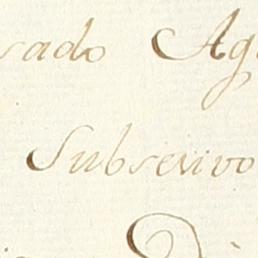 rado Ag
Subsevivo